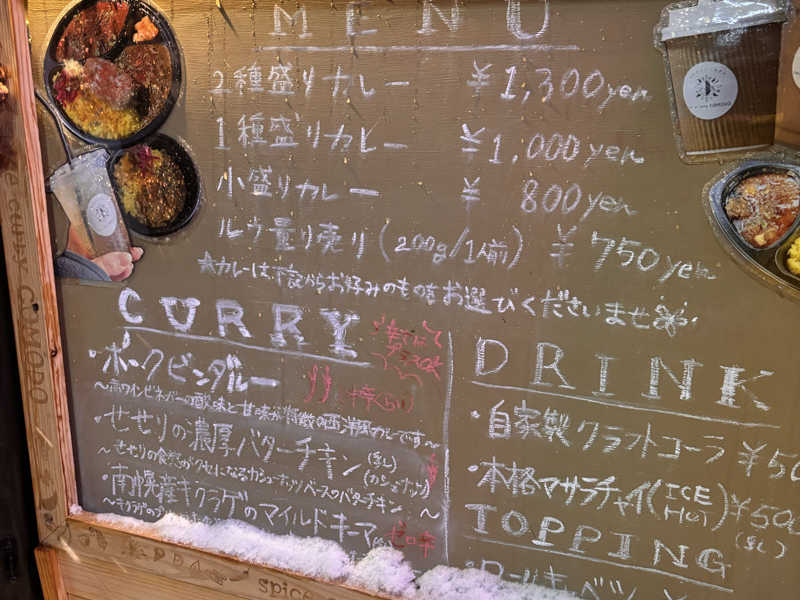 MENU
2種盛りカレー ¥1,300yen
1種盛りカレー ¥1,000yen
小盛りカレー ¥800yen
ルウ量り売り(200g/1人前) ¥750yen
★カレーは下記からお好みのものをお選びくださいませ
CURRY
・ポークビンダルー
〜赤ワインビネガーの酸味と甘味が特徴の西洋風カレーです〜
・せせりの濃厚バターチキン(乳)(カシューナッツ)
〜せせりの食感がクセになるカシューナッツベースのバターチキン〜
・南幌産キクラゲのマイルドキーマ ゼロ辛
〜キクラゲの
DRINK
・自家製クラフトコーラ ¥50
・本格マサラチャイ(ICE Hot) ¥500
(乳)
TOPPING
CURRY COMODO
spice